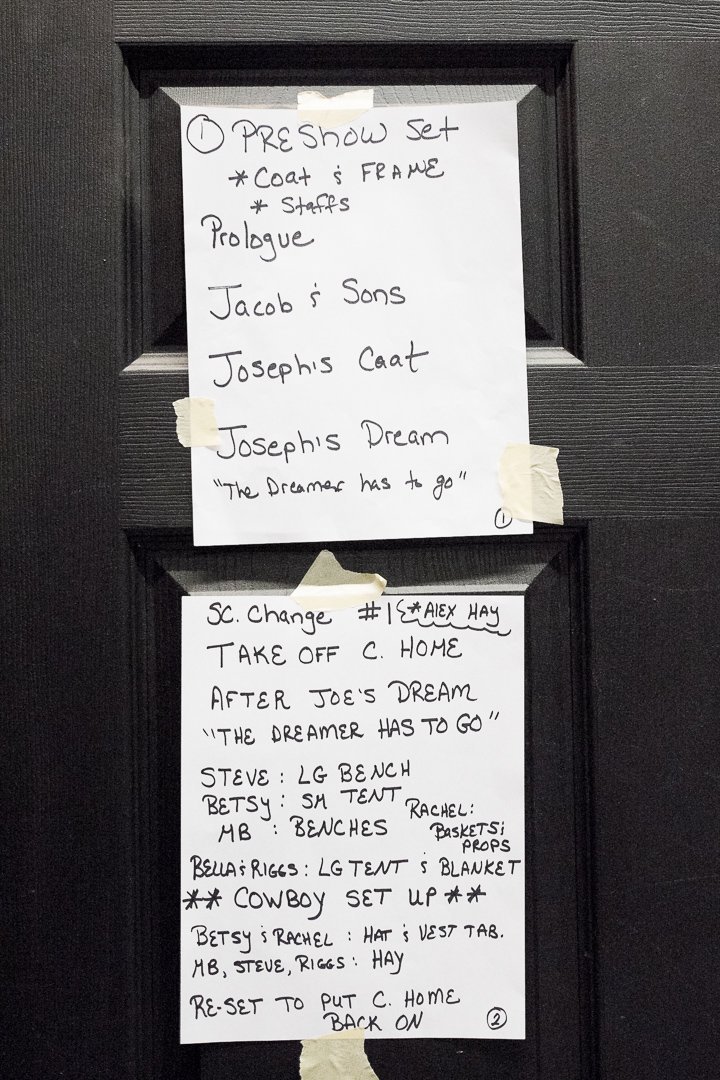 ① PRESHOW Set
* Coat & FRAME
* Staffs
Prologue
Jacob & Sons
Joseph's Coat
Joseph's Dream
"The Dreamer has to go"
①
SC. Change #1 {*ALEX HAY
TAKE OFF C. HOME
AFTER JOE'S DREAM
"THE DREAMER HAS TO GO"
STEVE: LG BENCH
BETSY: SM TENT
MB : BENCHES
RACHEL:
BASKETS &
PROPS
BELLA & RIGGS: LG TENT & BLANKET
** COWBOY SET UP **
BETSY & RACHEL : HAT & VEST TAB.
MB, STEVE, RIGGS: HAY
RE-SET TO PUT C. HOME
BACK ON
②